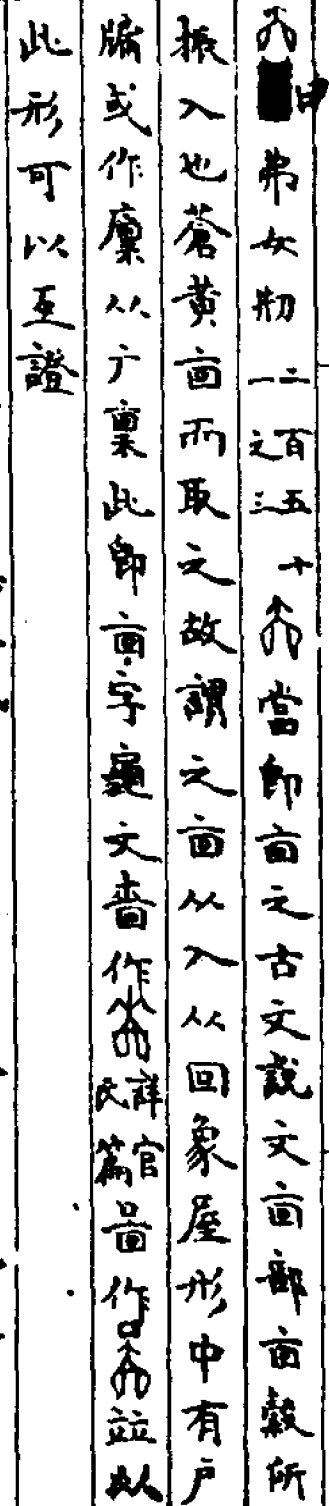 申弟女㓞二百五十一之三當即㐭之古文說文㐭部㐭穀所
振入也蒼黃㐭而取之故謂之㐭从入从回象屋形中有戶
牖或作廩从广稟此即㐭字龜文嗇作詳官氏篇啚作竝从
此形可以互證